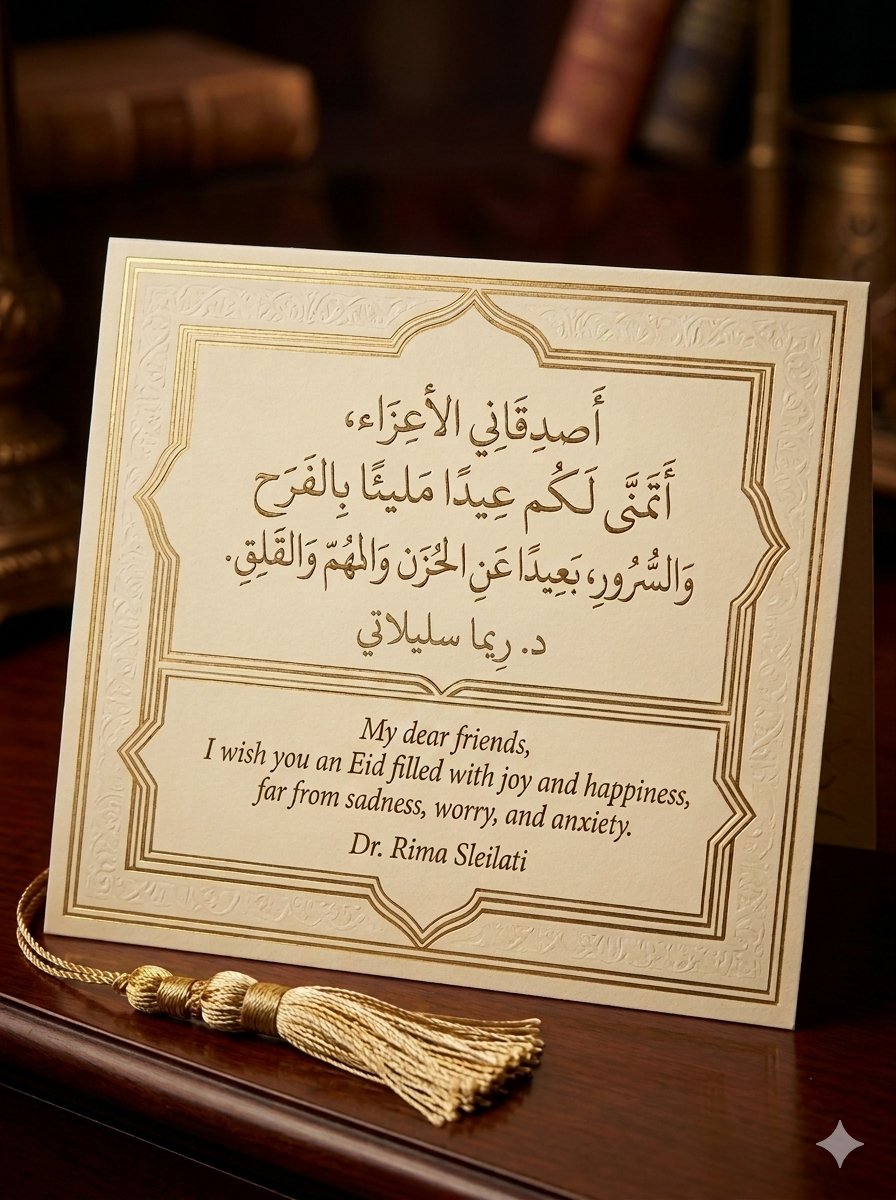 أَصدِقَاني الأعِزَاء،
أَتَمَنَّى لَكُم عِيدًا مَليئًا بِالفَرَح
وَالسُّرُورِ، بَعِيدًا عَنِ الحُزَن وَالهُمّ وَالقَلِقِ.
د. رِيما سليلاتي
My dear friends,
I wish you an Eid filled with joy and happiness,
far from sadness, worry, and anxiety.
Dr. Rima Sleilati